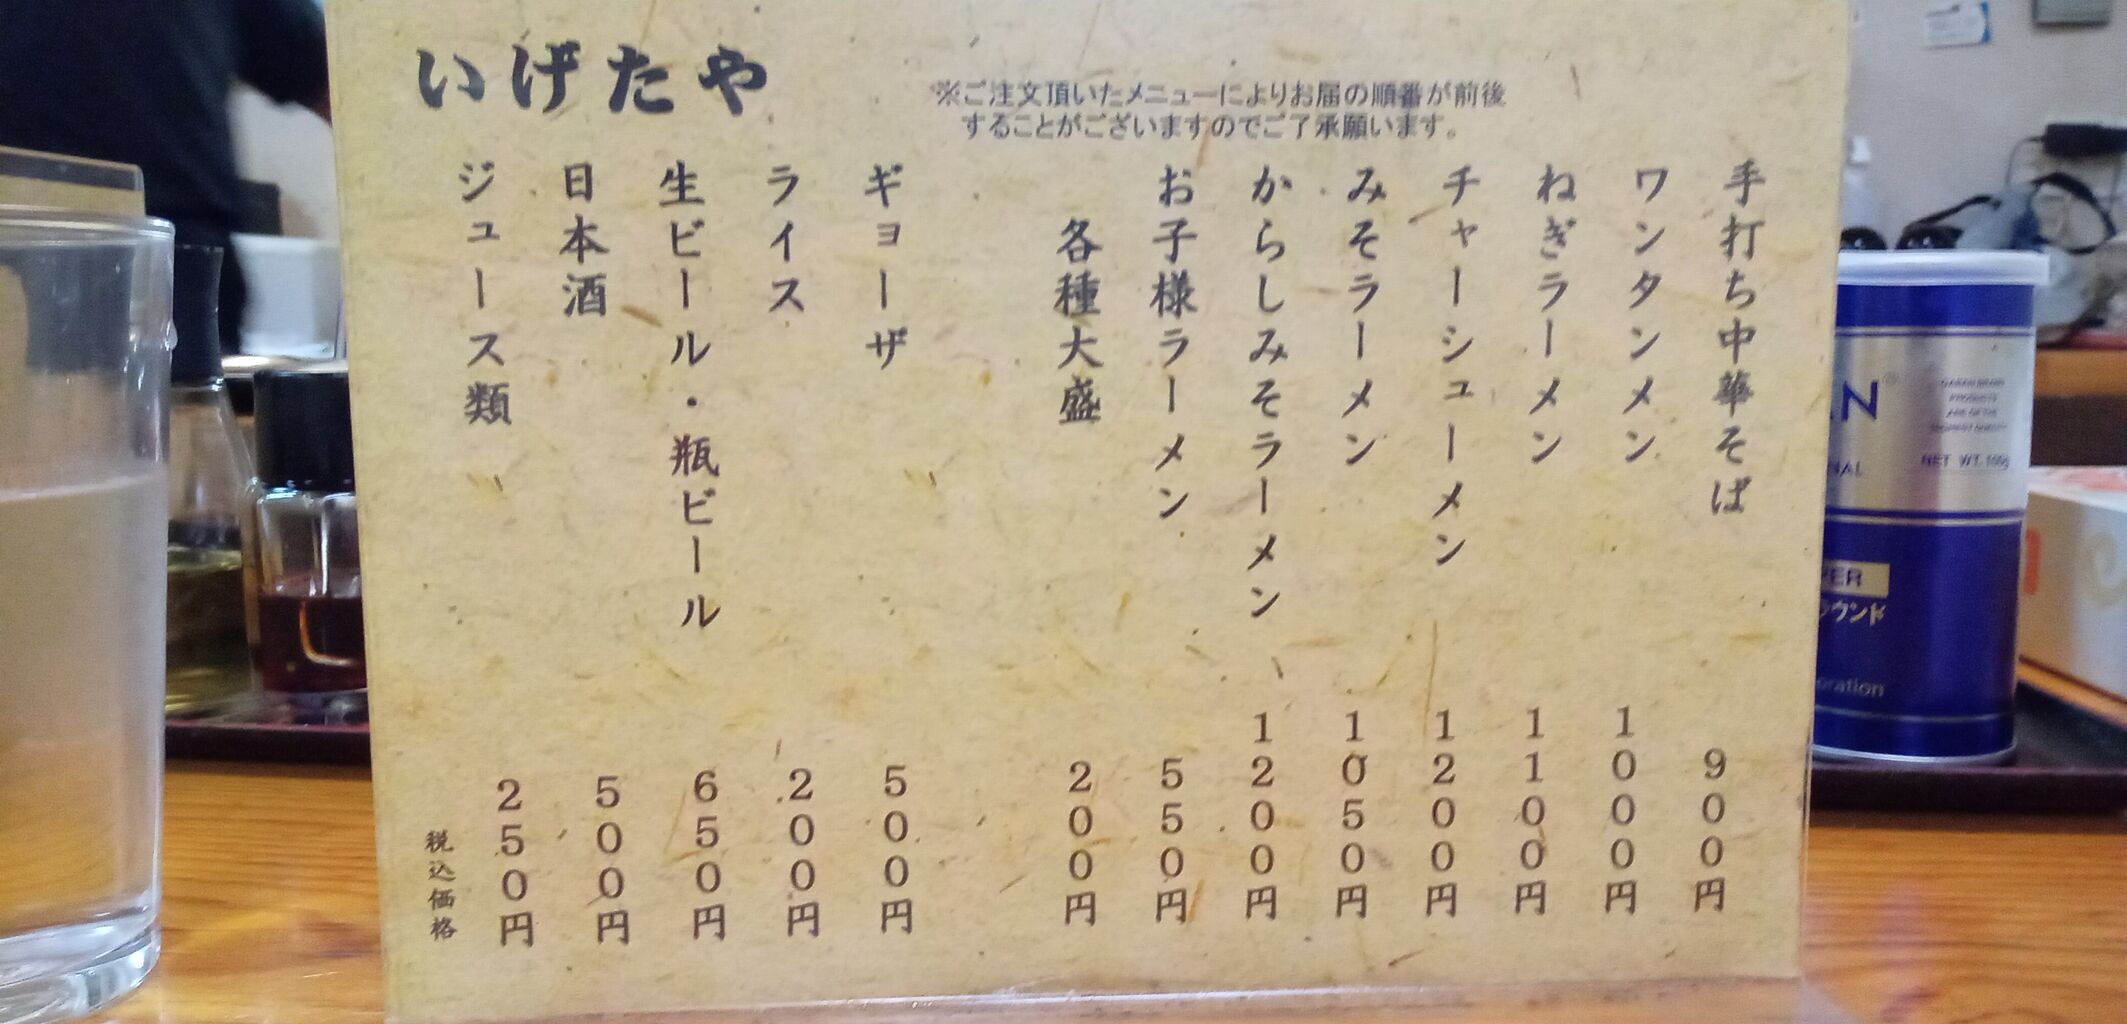 いげたや
※ご注文頂いたメニューによりお届の順番が前後
することがございますのでご了承願います。
手打ち中華そば 900円
ワンタンメン 1000円
ねぎラーメン 1100円
チャーシューメン 1200円
みそラーメン 1050円
からしみそラーメン 1200円
お子様ラーメン 550円
各種大盛 200円
ギョーザ 500円
ライス 200円
生ビール・瓶ビール 650円
日本酒 500円
ジュース類 250円
税込価格
NET WT. 100g